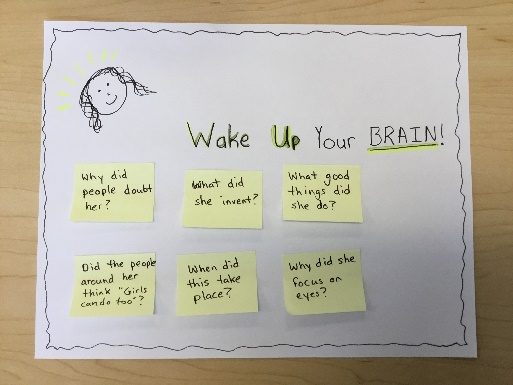 Wake Up Your BRAIN!
Why did
people doubt
her?
What did
she invent?
What good
things did
she do?
Did the people
around her
think "Girls
can do too"?
When did
this take
place?
Why did she
focus on
eyes?